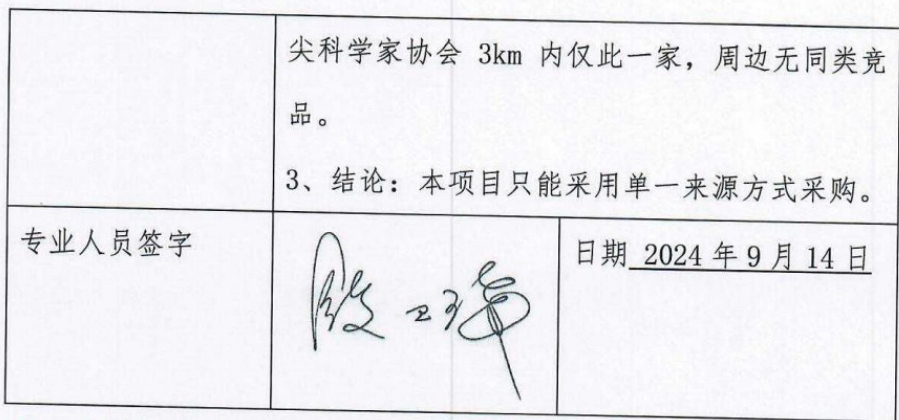 尖科学家协会 3km 内仅此一家，周边无同类竞
品。
3、结论：本项目只能采用单一来源方式采购。
专业人员签字
日期 2024 年 9 月 14 日